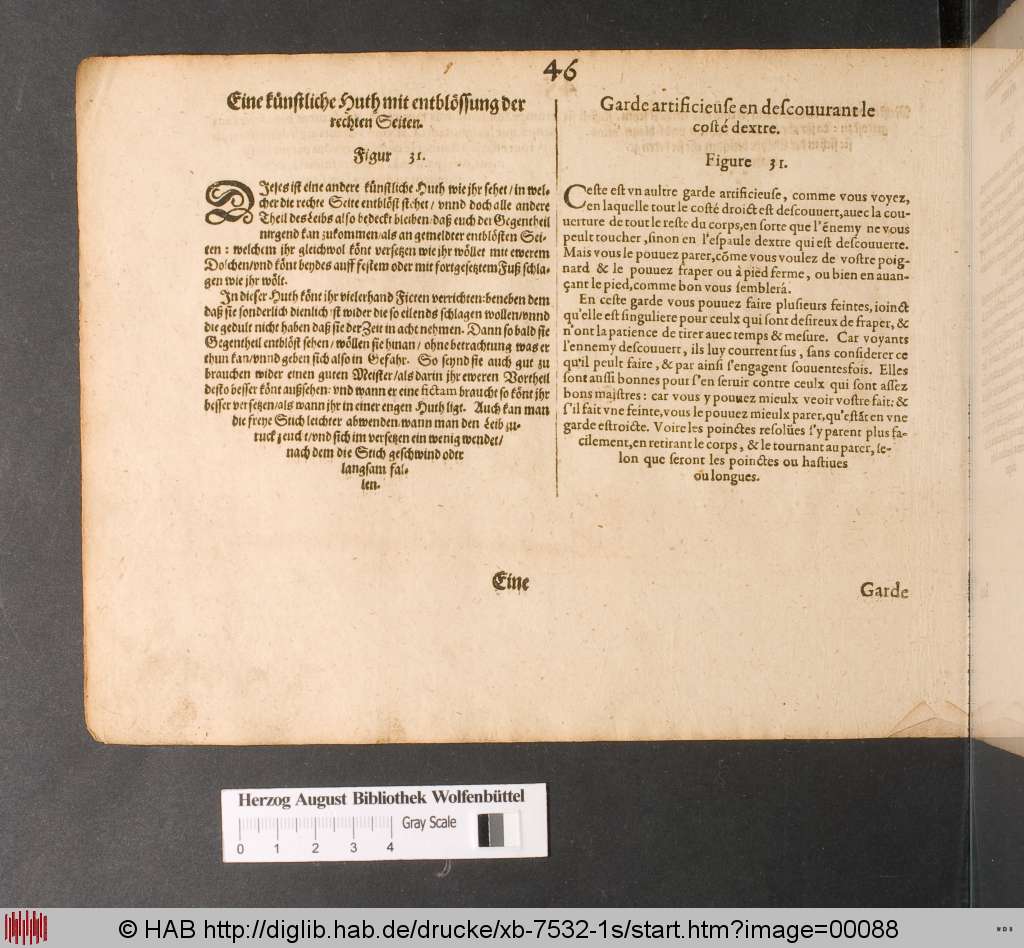 46
Eine künstliche Huth mit entblössung der
rechten Seiten.
Figur 31.
DIeses ist eine andere künstliche Huth wie jhr sehet / in wel-
cher die rechte Seite entblöst stehet / vnnd doch alle andere
Theil des Leibs also bedeckt bleiben / daß euch der Gegentheil
nirgend kan zukommen / als an gemeldter entblösten Sei-
ten : welchem jhr gleichwol könt versetzen wie jhr wöllet mit ewerem
Dolchen / vnd könt beydes auff festem oder mit fortgesetztem Fuß schla-
gen wie jhr wölt.
In dieser Huth könt jhr vielerhand Ficten verrichten: beneben dem
daß sie sonderlich dienlich ist wider die so eilends schlagen wollen / vnnd
die gedult nicht haben daß sie der Zeit in acht nehmen. Dann so bald sie
Gegentheil entblöst sehen / wöllen sie hinan / ohne betrachtung was er
thun kan / vnnd geben sich also in Gefahr. So seynd sie auch gut zu
brauchen wider einen guten Meister / als darin jhr eweren Vortheil
desto besser könt außsehen: vnd wann er eine fictam braucht so könt jhr
besser versetzen / als wann jhr in einer engen Huth ligt. Auch kan man
die freye Stich leichter abwenden wann man den Leib zu-
ruck zeucht / vnd sich im versetzen ein wenig wendet /
nach dem die Stich geschwind oder
langsam fal-
len.
Eine
Garde artificieuse en descouurant le
costé dextre.
Figure 31.
Ceste est vn aultre garde artificieuse, comme vous voyez,
en laquelle tout le costé droict est descouuert, auec la cou-
uerture de tout le reste du corps, en sorte que l'énemy ne vous
peult toucher, sinon en l'espaule dextre qui est descouuerte.
Mais vous le pouuez parer, cōme vous voulez de vostre poig-
nard & le pouuez fraper ou à pied ferme, ou bien en auan-
çant le pied, comme bon vous semblerá.
En ceste garde vous pouuez faire plusieurs feintes, ioinct
qu'elle est singuliere pour ceulx qui sont desireux de fraper, &
n'ont la patience de tirer auec temps & mesure. Car voyants
l'ennemy descouuert, ils luy courrent sus, sans considerer ce
qu'il peult faire, & par ainsi s'engagent souuentesfois. Elles
sont aussi bonnes pour s'en seruir contre ceulx qui sont assez
bons maistres : car vous y pouuez mieulx veoir vostre fait: &
s'il fait vne feinte, vous le pouuez mieulx parer, qu'estāt en vne
garde estroicte. Voire les poinctes resolües s'y parent plus fa-
cilement, en retirant le corps, & le tournant au parer, se-
lon que seront les poinctes ou hastiues
ou longues.
Garde
Herzog August Bibliothek Wolfenbüttel
Gray Scale
0 1 2 3 4
© HAB http://diglib.hab.de/drucke/xb-7532-1s/start.htm?image=00088